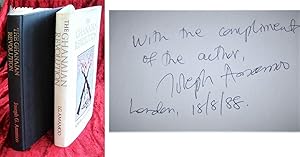 THE GHANAIAN REVOLUTION
Joseph G. Amamoo
THE GHANAIAN REVOLUTION
J.G. AMAMOO
With the compliments
of the author,
Joseph Amamoo
London, 18/8/88.